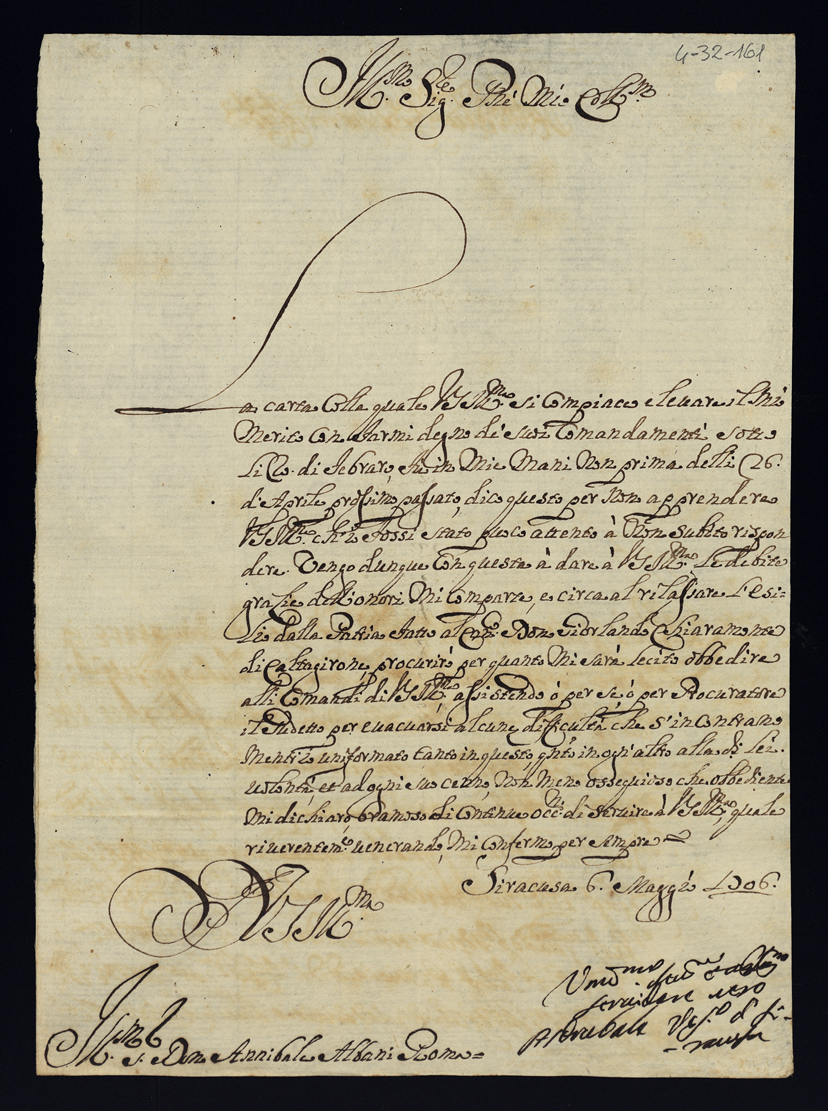 4-32-161
Ill.mo Sig.re P.rõe Mio Coll.mo
La carta colla quale VS Ill.ma si compiace elevare il mio
merito con farmi degno de suoi Comandamenti sotto
li di Febraro, fù in mie mani non prima delli 26.
d'Aprile prossimo passato, dico questo per non apprendere
VS Ill.ma ch'io fossi stato poco attento à non subito rispon
dere. Vengo dunque con questa à dare à VS Ill.ma le debite
grazie dell'onori mi comparte, e circa al rilassare l'esi=
lio dalla Patria fatto al Don Giorlando Chiaramonte
di Caltagirone, procurirò per quanto mi sarà lecito obbedire
alli Comandi di VS Ill.ma assistendo ò per sé, ò per Procuratore
il sudetto per evacuarsi alcune dificultà che s'incontrano
mentr'io uniformato tanto in questo q.nto in ogn'altro alla di lei
volontà, et ad ogni suo cenno, non meno ossequioso che obbediente
mi dichiaro bramoso di continue occ.ni di servire à VS Ill.ma quale
riverentem.te venerando, mi confermo per sempre =
Siracusa 6. Maggio 1706.
D VS Ill.ma
Um.mo
servidore vero
Asdrubale Vesc.o di Si=
=racusa
Ill.mo S. Don Annibale Albani Roma=